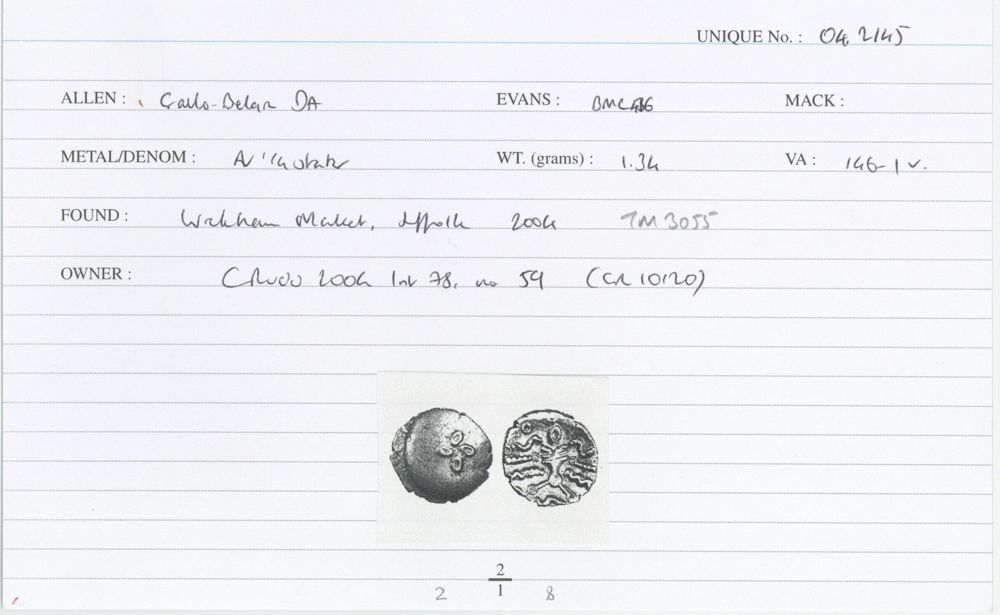 UNIQUE No. : 04 2145
ALLEN : Gallo-Belgic DA EVANS : BMC 486 MACK :
METAL/DENOM : AV 1/4 stater WT. (grams) : 1.34 VA : 146-1 v.
FOUND : Wickham Market, Suffolk 2004 TM 3055
OWNER : 2004 list 78, no 59 (CR 10120)
2
1
2 8